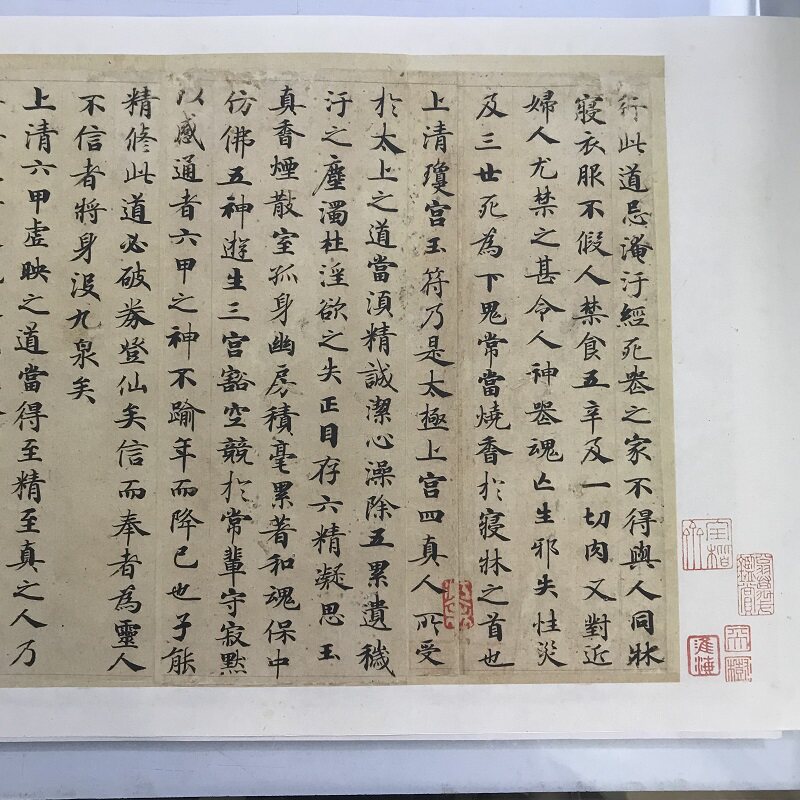 行此道忌淹汙經死喪之家不得與人同牀
寢衣服不假人禁食五辛及一切肉又對近
婦人尤禁之甚令人神喪魂亡生邪失性災
及三世死為下鬼常當燒香於寢牀之首也
上清瓊宮玉符乃是太極上宮四真人所受
於太上之道當須精誠潔心澡除五累遺穢
汙之塵濁杜淫欲之失正目存六精凝思玉
真香煙散室孤身幽房積毫累著和魂保中
仿佛五神遊生三宮豁空競於常輩守寂默
以感通者六甲之神不踰年而降已也子能
精修此道必破券登仙矣信而奉者為靈人
不信者將身沒九泉矣
上清六甲虛映之道當得至精至真之人乃